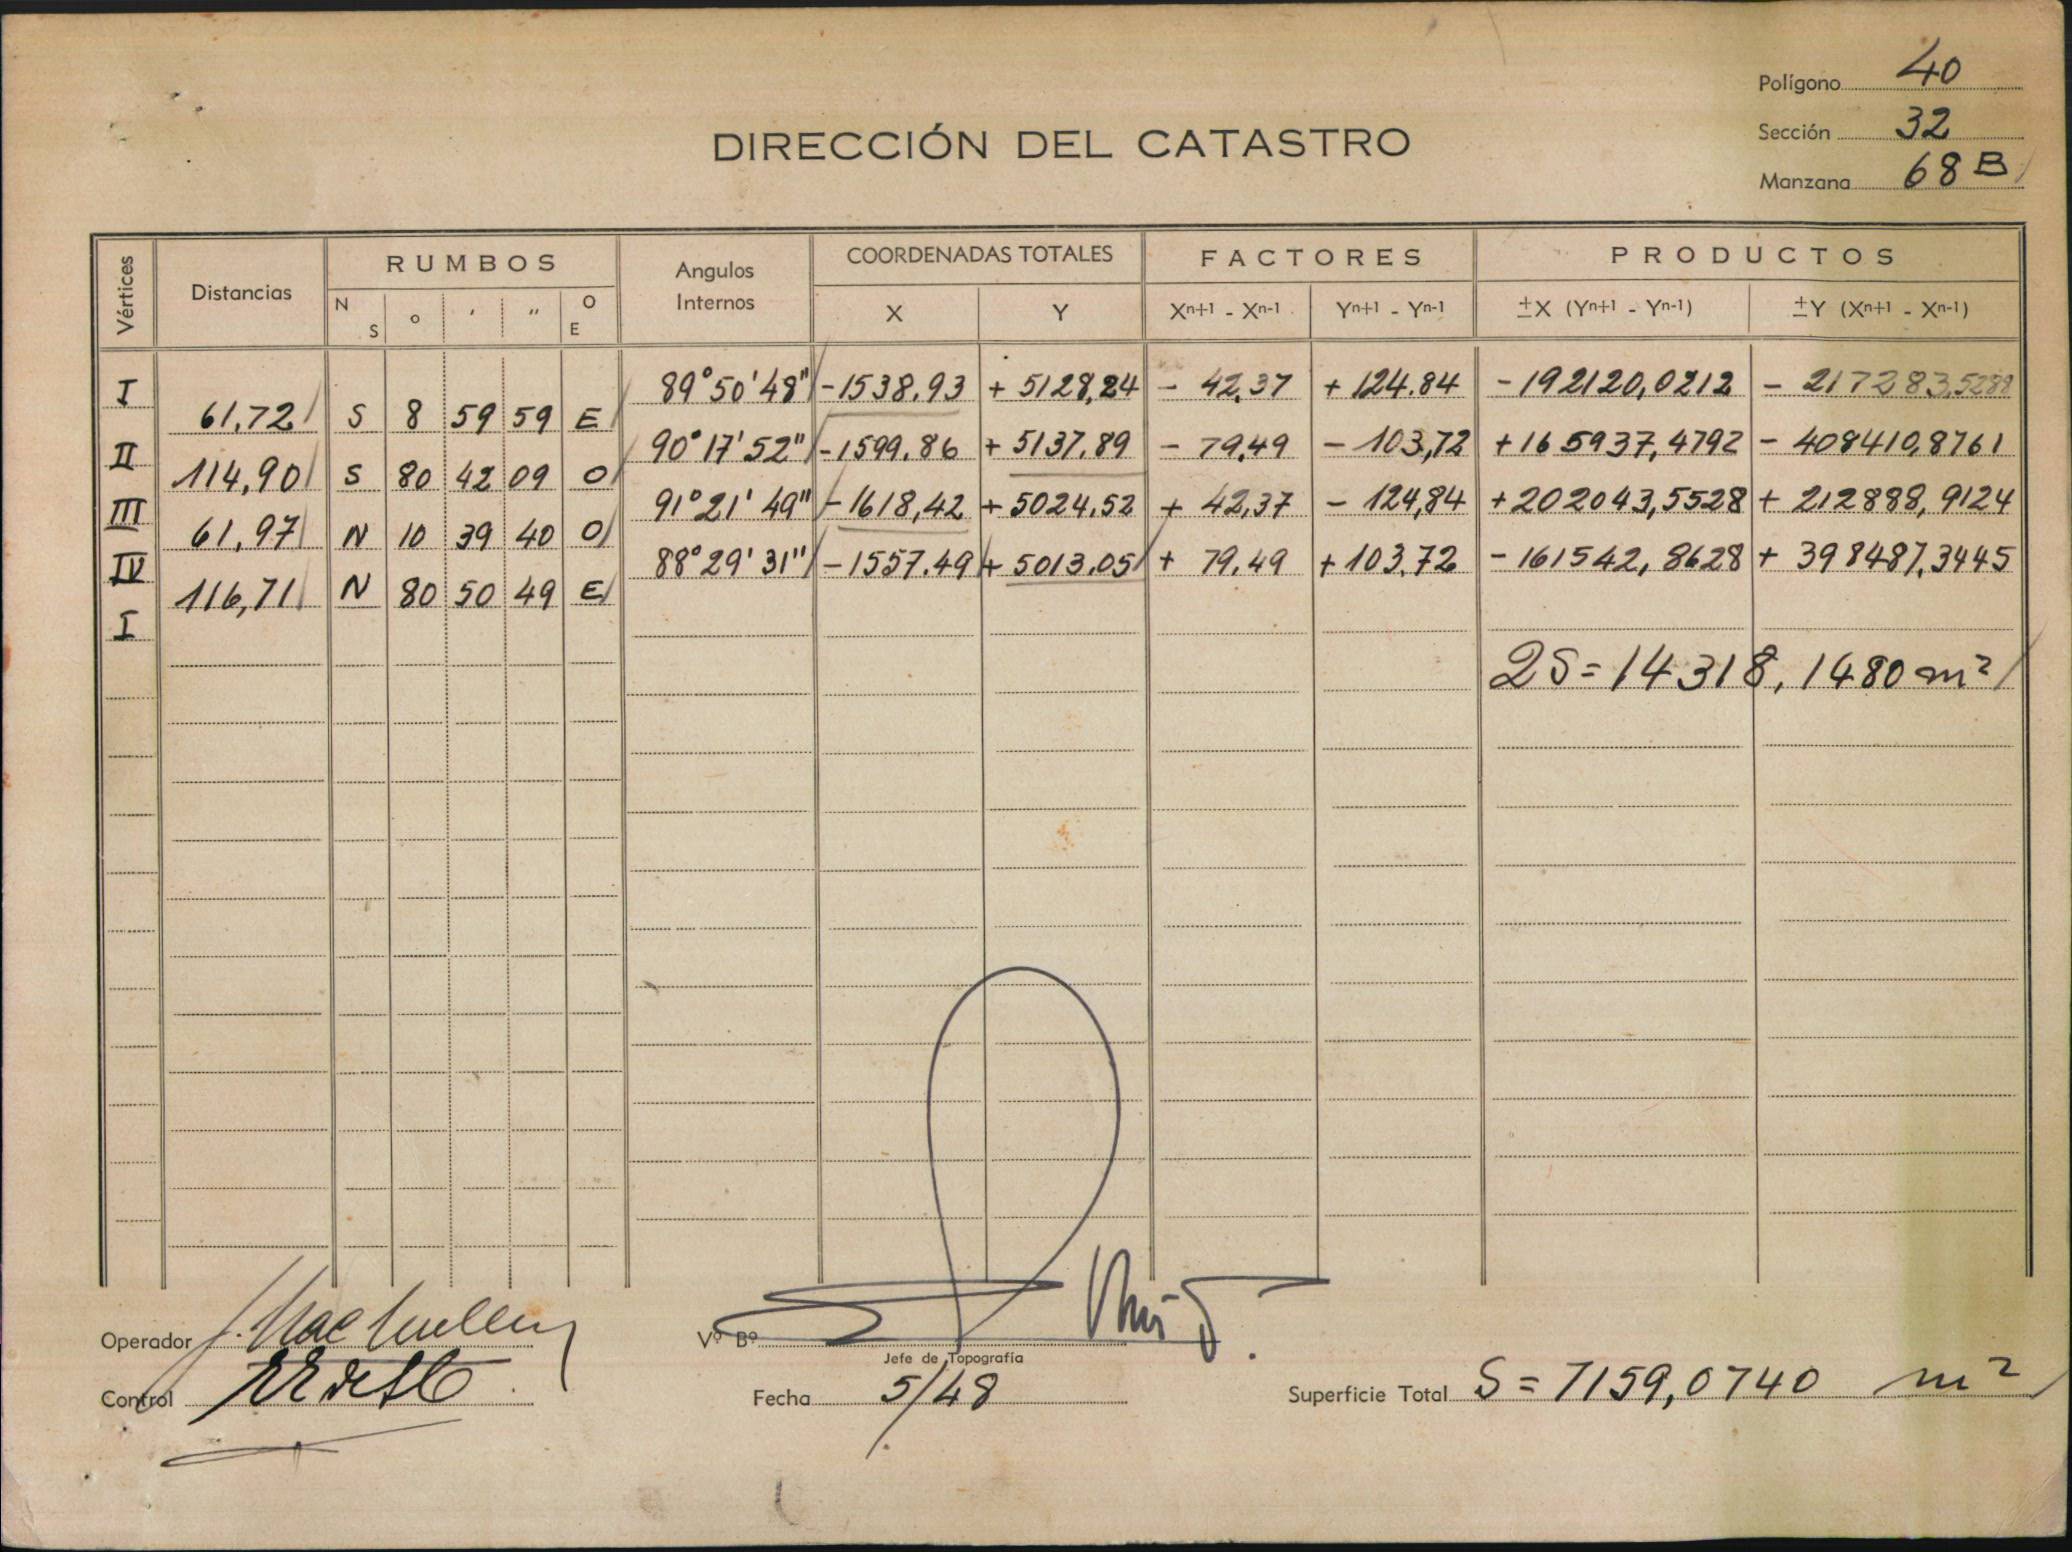 Polígono 40
Sección 32
Manzana 68 B
DIRECCIÓN DEL CATASTRO
Vértices Distancias RUMBOS Angulos Internos COORDENADAS TOTALES FACTORES PRODUCTOS
N S ° ' " O E X Y Xn+1 - Xn-1 Yn+1 - Yn-1 ±X (Yn+1 - Yn-1) ±Y (Xn+1 - Xn-1)
I 89°50'48" -1538.93 + 5128,24 - 42,37 + 124.84 - 192120,0212 - 217283,5288
61,72 S 8 59 59 E
II 90°17'52" -1599.86 + 5137.89 - 79,49 - 103,72 + 165937,4792 - 408410,8761
114,90 S 80 42 09 O
III 91°21'49" - 1618,42 + 5024,52 + 42,37 - 124,84 + 202043,5528 + 212888,9124
61,97 N 10 39 40 O
IV 88°29'31" - 1557.49 + 5013.05 + 79,49 + 103,72 - 161542,8628 + 398487,3445
116,71 N 80 50 49 E
I
2S = 14318,1480 m²
Operador
Vº Bº
Jefe de Topografía
Control
Fecha 5/48
Superficie Total S = 7159,0740 m²